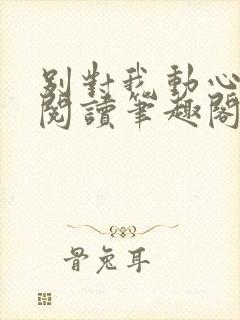 別對我動心
閱讀筆趣閣
骨兔耳